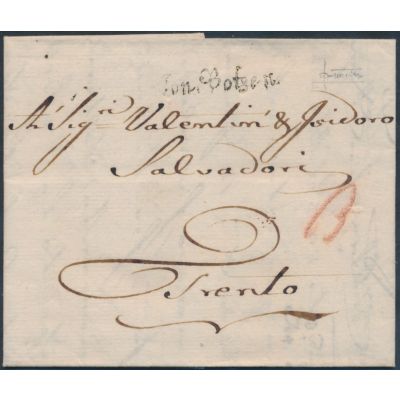 Von Botzen
A' Sig.ri Valentin' & Isidoro
Salvadori
Trento